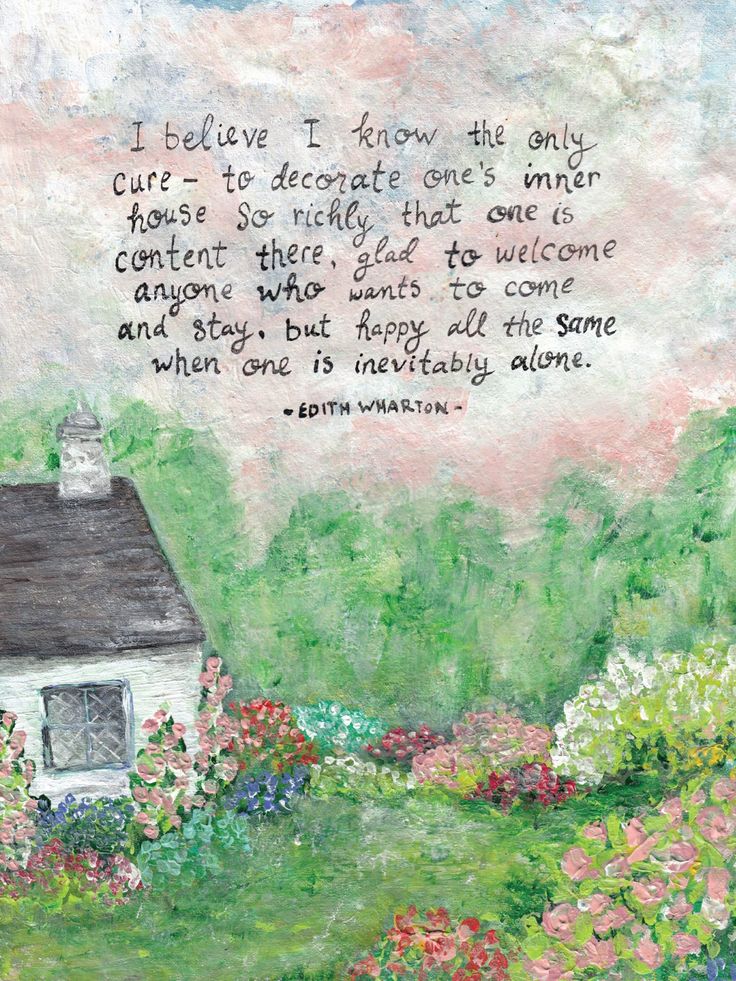 I believe I know the only
cure – to decorate one's inner
house so richly that one is
content there, glad to welcome
anyone who wants to come
and stay, but happy all the same
when one is inevitably alone.
- EDITH WHARTON -